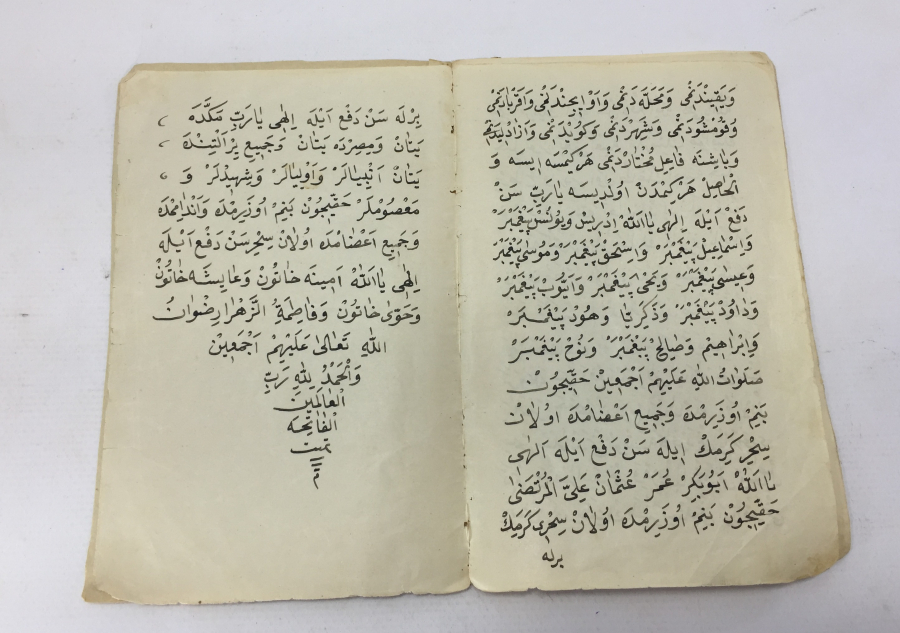 وَيَقِينْدَنْمِى وَمَحَلَّه دَنْمِى وَاَوْ اِيچِنْدَنْمِى وَاَقْرَبَادَنْمِى
وَقُومْشُودَنْمِى وَشَهِرْدَنْمِى وَكُويْدَنْمِى
وَيَا يَشِنَه فَاعِلِ مُخْتَارْدَنْمِى هَرْ كِيمْسَه اِيسَه وَ
اَلْحَاصِلْ هَرْ كِيمْدَنْ اُولْدِيسَه يَا رَبِّ سَنْ
دَفْعِ اَيْلَه اِلٰهِى يَا اَللّٰهُ اِدْرِيسْ وَيُونُسْ پَيْغَمْبَرْ
وَاِسْمَاعِيلْ پَيْغَمْبَرْ وَاِسْحٰقْ پَيْغَمْبَرْ وَمُوسٰى پَيْغَمْبَرْ
وَعِيسٰى پَيْغَمْبَرْ وَيَحْيٰى پَيْغَمْبَرْ وَاَيُّوبْ پَيْغَمْبَرْ
وَدَاوُدْ پَيْغَمْبَرْ وَذَكَرِيَّا وَهُودْ پَيْغَمْبَرْ
وَاِبْرَاهِيمْ وَصَالِحْ پَيْغَمْبَرْ وَنُوحْ پَيْغَمْبَرْ
صَلَوَاتُ اللّٰهِ عَلَيْهِمْ اَجْمَعِينْ حَقِّيچُونْ
بَنِمْ اُوزَرِمْدَه وَجَمِيعِ اَعْضَامْدَه اُولَانْ
سِحْرِ كَرَمِكْ اِيلَه سَنْ دَفْعِ اَيْلَه اِلٰهِى
يَا اَللّٰهُ اَبُوبَكِرْ عُمَرْ عُثْمَانْ عَلِىِّ الْمُرْتَضٰى
حَقِّيچُونْ بَنِمْ اُوزَرِمْدَه اُولَانْ سِحْرِى كَرَمِكْ
بِرْلَه
بِرْلَه سَنْ دَفْعِ اَيْلَه اِلٰهِى يَا رَبِّ مَكَّدَه
يَتَانْ وَمِصِرْدَه يَتَانْ وَجَمِيعِ يَرْ اَلْتِنْدَه
يَتَانْ اَنْبِيَالَرْ وَاَوْلِيَالَرْ وَشَهِيدْلَرْ وَ
مَعْصُوملَرْ حَقِّيچُونْ بَنِمْ اُوزَرِمْدَه وَاَنْدَامِمْدَه
وَجَمِيعِ اَعْضَامْدَه اُولَانْ سِحْرِ سَنْ دَفْعِ اَيْلَه
اِلٰهِى يَا اَللّٰهُ اَمِينَه خَاتُونْ وَعَايِشَه خَاتُونْ
وَحَوّٰى خَاتُونْ وَفَاطِمَةِ الزَّهْرَا رِضْوَانُ
اللّٰهِ تَعَالٰى عَلَيْهِمْ اَجْمَعِينْ
وَالْحَمْدُ لِلّٰهِ رَبِّ
الْعَالَمِينَ
اَلْفَاتِحَه
تمت
م